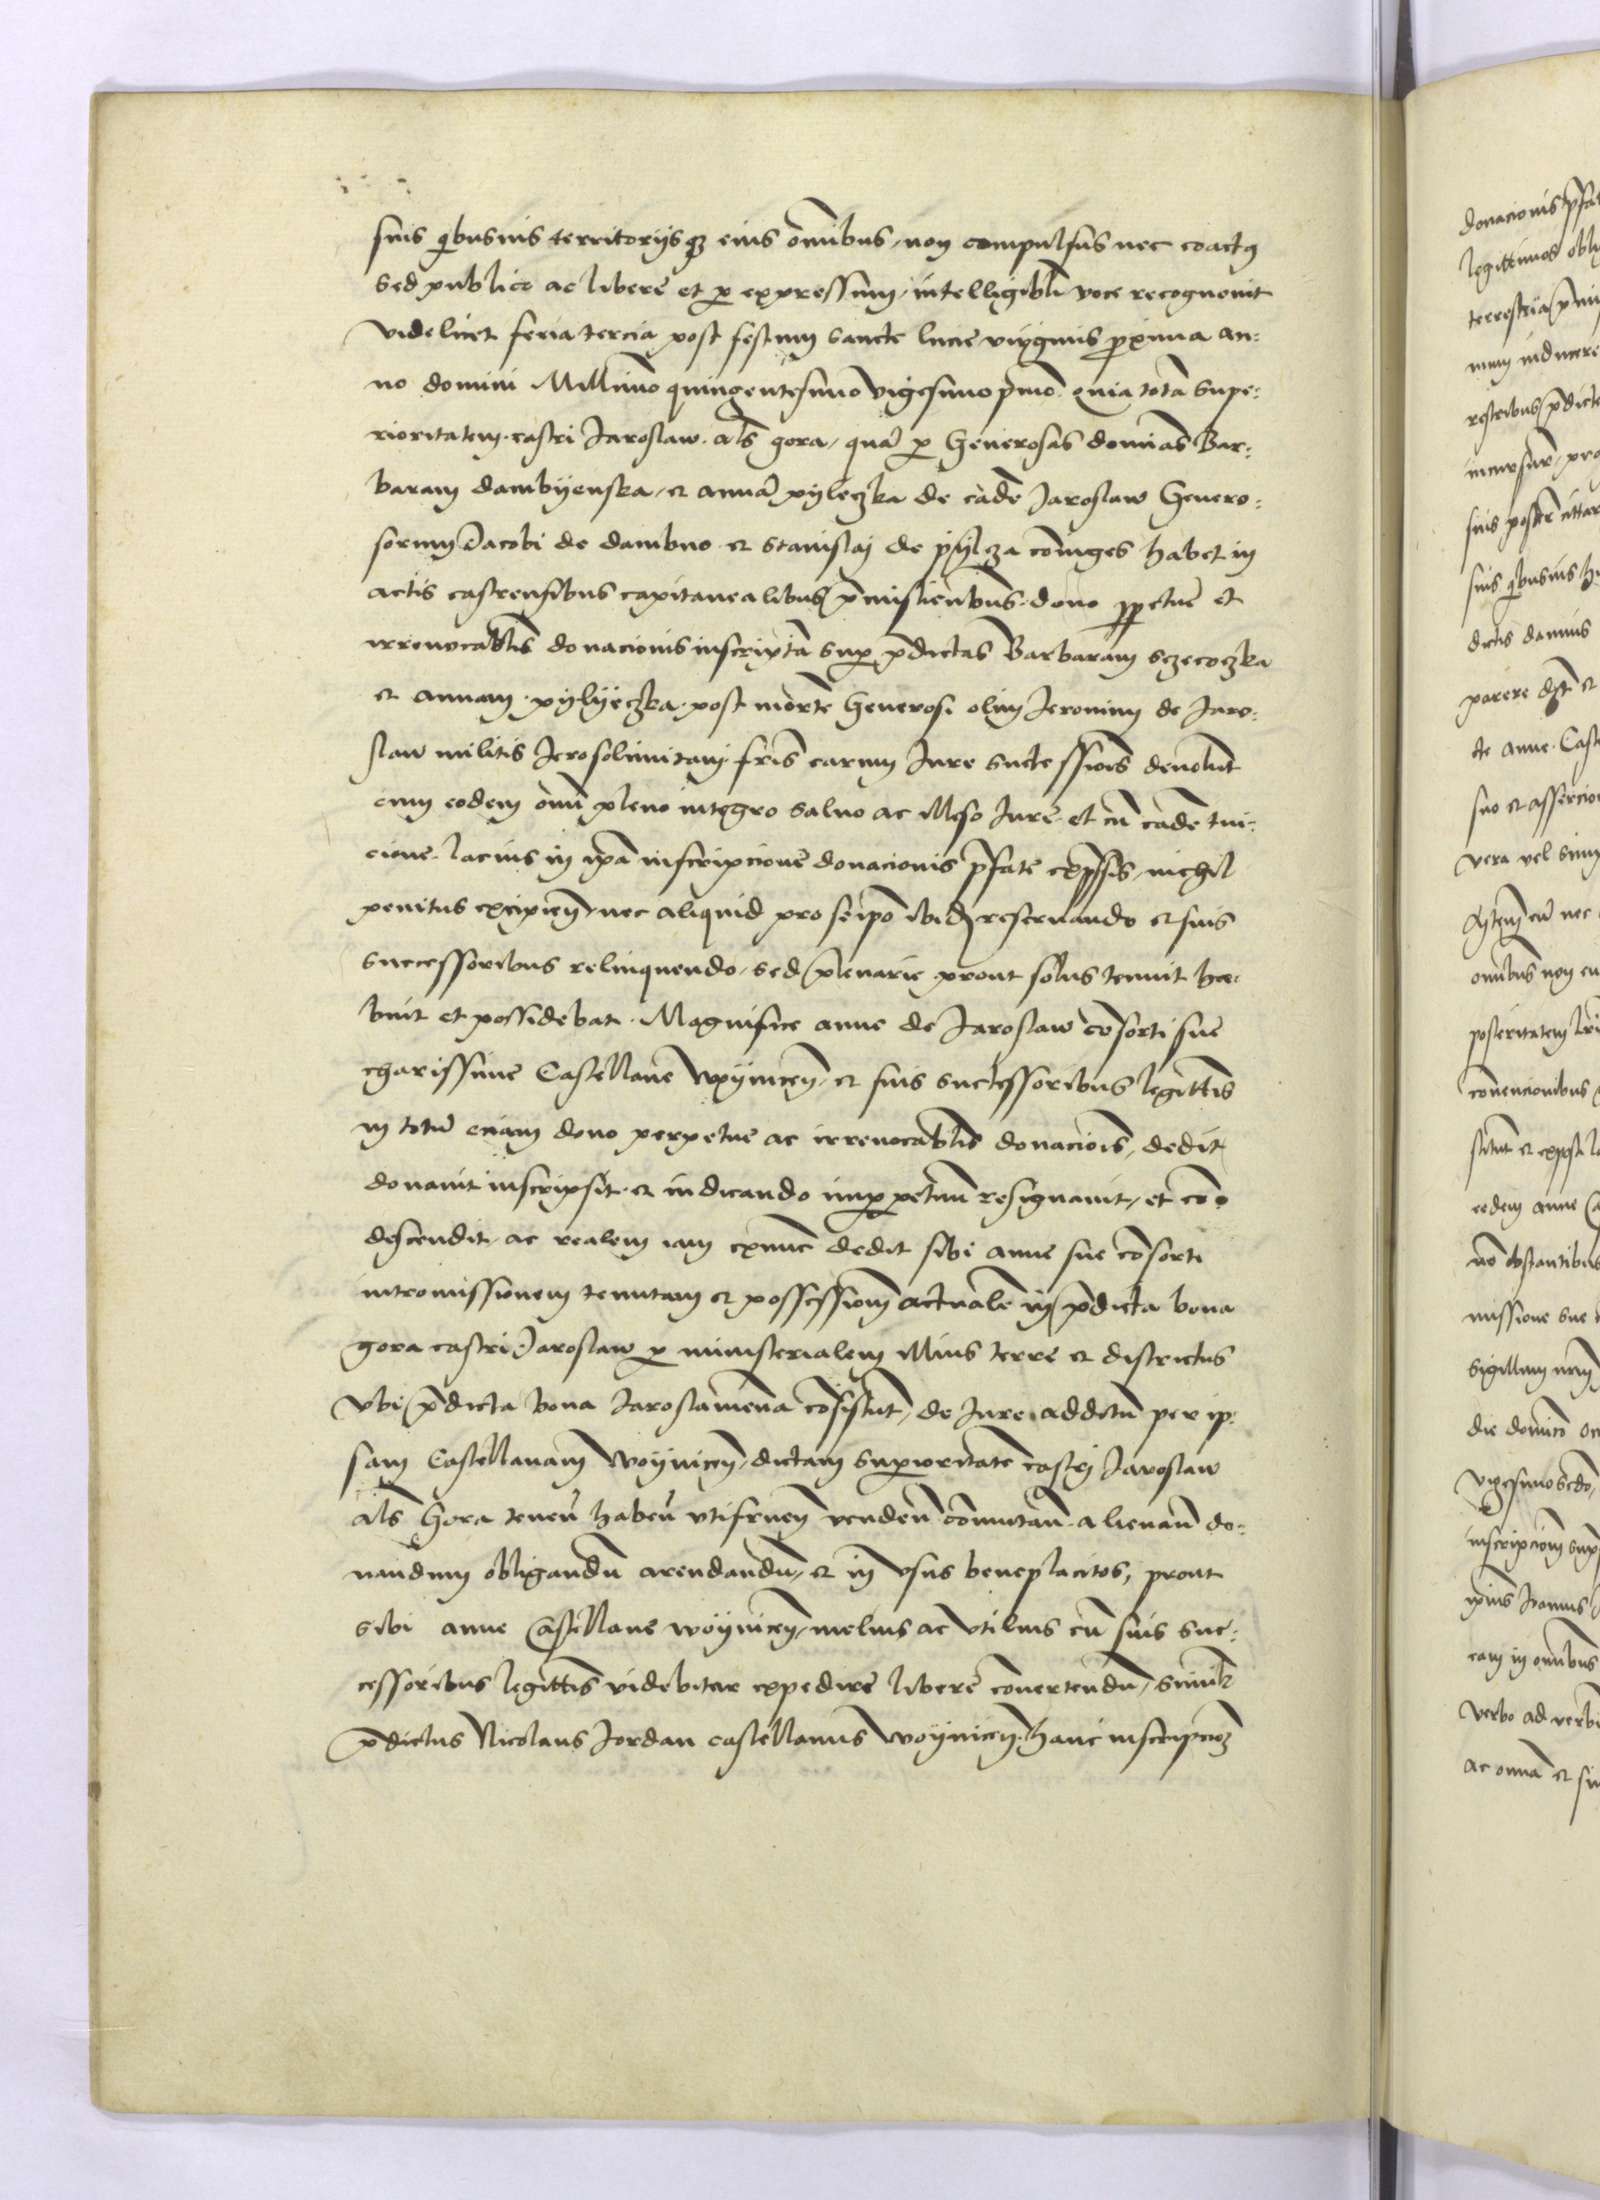 suis q̲busuis territorÿsq̲ eius om̃ibus, non compulsus nec coactus
sed publico ac libere et p̱ expressum, intelligibli voce recognouit
videlicet feria tercia post festum sancte lucie virginis p̱xima an:
no domini Millĩmo quingentesimo vigesimo pmo. quia totã supe:
rioritatem castri Jaroslaw. al̃s gora, quã p̱ Generosas domĩas Bar:
baram dambÿenska, et annã pyleczka de eadẽ Jaroslaw Genero:
sorum Jacobi de dambno et Stanislaj de pÿlcza cõiuges habet in
actis castrensibus capitanealibus p̃misliensibus. dono p̱petue et
irreuocablis donacionis inscriptã sup̱ p̃dictas Barbaram sczecoczka
et annam. pylÿeczka. post mortẽ Generosi olim Jeronimj de Jaro:
slaw militis Jerosolimitanj fr̃is earum Jure successiõis deuolut
cum eodem om̃i pleno integro saluo ac illeso Jure. et cũ eadẽ tui:
cione. lacius in ip̃a inscripcione donacionis p̃fate exp̃ssis, nichil
penitus excipieñ, nec aliquid pro seip̃o ibidẽ reseruando et suis
successoribus relinquendo, sed plenarie prout solus tenuit ha:
buit et possidebat. Magnifice anne de Jaroslaw cõsorti sue
charissime Castellane woÿniceñ, et suis successoribus legitt̃is
in totũ eciam dono perpetue ac irreuocablis donaciõis, dedit
donauit inscripsit. et in dicando imp̱petuum resignauit, et cõ
descendit, ac realem iam exnunc dedit sibi anne sue cõsorti
intromissionem tenutam et possessionẽ actualẽ in p̃dicta bona
gora castri Jaroslaw p̱ ministerialem illius terre et districtus
vbi p̃dicta bona Jaroslauiena cõsistũt, de Jure additũ per ip:
sam Castellanam woÿniceñ, dictam sup̱ioritatẽ castrj Jaroslaw
al̃s Gora teneñ habeñ vtifrueñ vendeñ cõmutañ. alienañ do:
nandum obligandũ arendandũ, et in vsus beneplacitos, prout
sibi anne Castellane woÿniceñ, melius ac vtilius cũ suis suc:
cessoribus legitt̃is videbitur expedire libere cõuertendũ, simil̃r
p̃dictus Nicolaus Jordan castellanus woÿniceñ. hanc inscripcioẽ